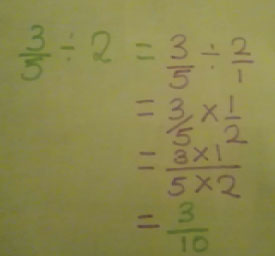 3/5 ÷ 2 = 3/5 ÷ 2/1
= 3/5 × 1/2
= 3×1/5×2
= 3/10